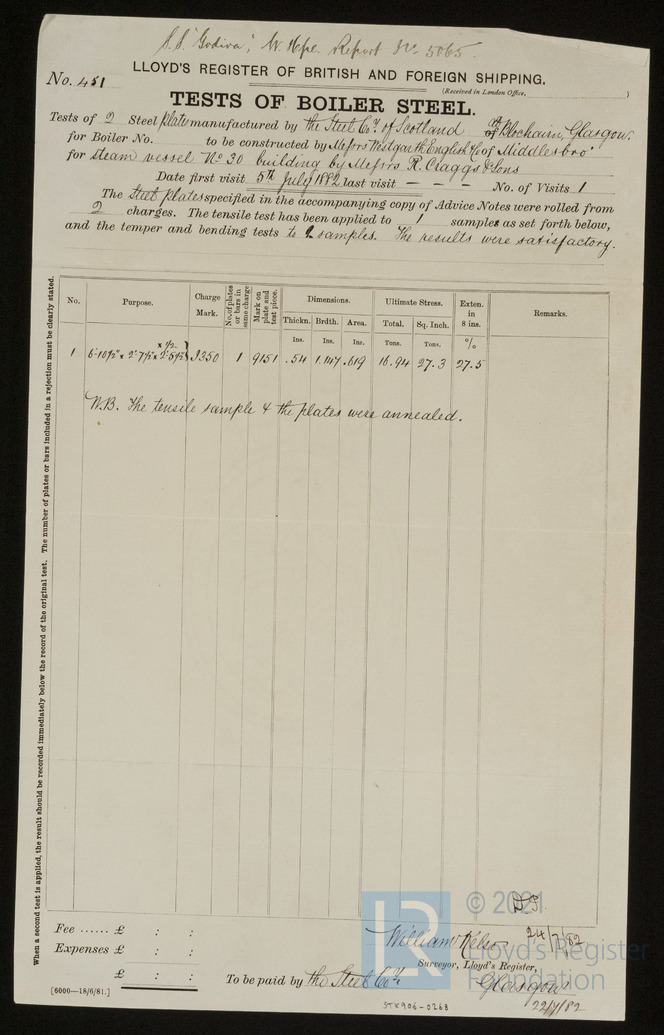 S.S. "Godiva", W. Hpl. Report No. 5065.
LLOYD'S REGISTER OF BRITISH AND FOREIGN SHIPPING.
No. 451
(Received in London Office, )
TESTS OF BOILER STEEL.
Tests of 2 Steel plates manufactured by the Steel Coy. of Scotland at Blochairn, Glasgow.
for Boiler No. to be constructed by Messrs Westgarth English & Co of Middlesbro'
for steam vessel No 30 building by Messrs R. Craggs & Sons
Date first visit 5th July 1882 last visit – – – No. of Visits 1
The Steel plates specified in the accompanying copy of Advice Notes were rolled from
2 charges. The tensile test has been applied to 1 samples as set forth below,
and the temper and bending tests to 2 samples. The results were satisfactory.
No. Purpose. Charge Mark. No. of plates or bars in same charge Mark on plate and test piece. Dimensions. Ultimate Stress. Exten. in 8 ins. Remarks.
Thickn. Brdth. Area. Total. Sq. Inch.
Ins. Ins. Ins. Tons. Tons. %
1 6'-10½" x 2'-7½" x 2'-5½" x ½ 1350 1 9151 .54 1.147 .619 16.94 27.3 27.5
N.B. The tensile sample & the plates were annealed.
When a second test is applied, the result should be recorded immediately below the record of the original test. The number of plates or bars included in a rejection must be clearly stated.
© 2021
24/7/82
Fee ...... £ : :
William Kelso
Lloyd's Register Foundation
Expenses £ : :
Surveyor, Lloyd's Register,
£ : :
To be paid by the Steel Coy.
Glasgow
[6000—18/6/81.]
STK906-0268
22/7/82
LR